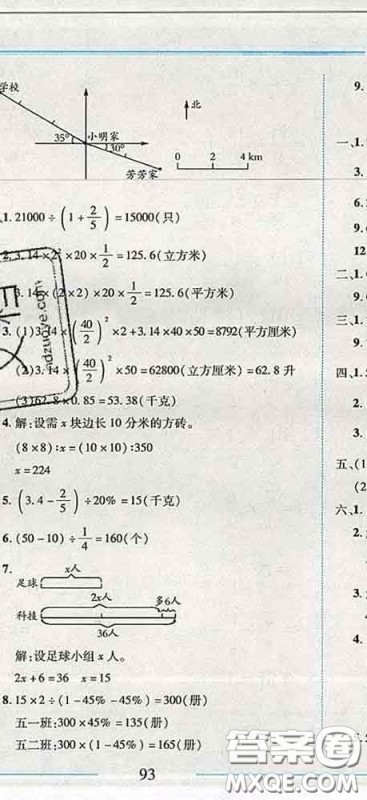 学校
北
35°
小明家
30°
芳芳家
0 2 4 km
1. 21000÷(1+2/5)=15000(只)
2. 3.14×2²×20×1/2=125.6(立方米)
3.14×(2×2)×20×1/2=125.6(平方米)
3. (1)3.14×(40/2)²×2+3.14×40×50=8792(平方厘米)
(2)3.14×(40/2)²×50=62800(立方厘米)=62.8升
(3)62.8×0.85=53.38(千克)
4. 解:设需x块边长10分米的方砖。
(8×8):x=(10×10):350
x=224
5. (3.4-2/5)÷20%=15(千克)
6. (50-10)÷1/4=160(个)
7.
x人
足球
2x人 多6人
科技
36人
解:设足球小组x人。
2x+6=36 x=15
8. 15×2÷(1-45%-45%)=300(册)
五一班:300×45%=135(册)
五二班:300×(1-45%)=165(册)
93
9.
一、1.
3.
6.
9.
12
二、1.
6.
三、1.
9.
四、1.
2.
3.
4.
五、(1
(2
六、1.
2.
3.
4.
5
答案圈
MXQE.COM